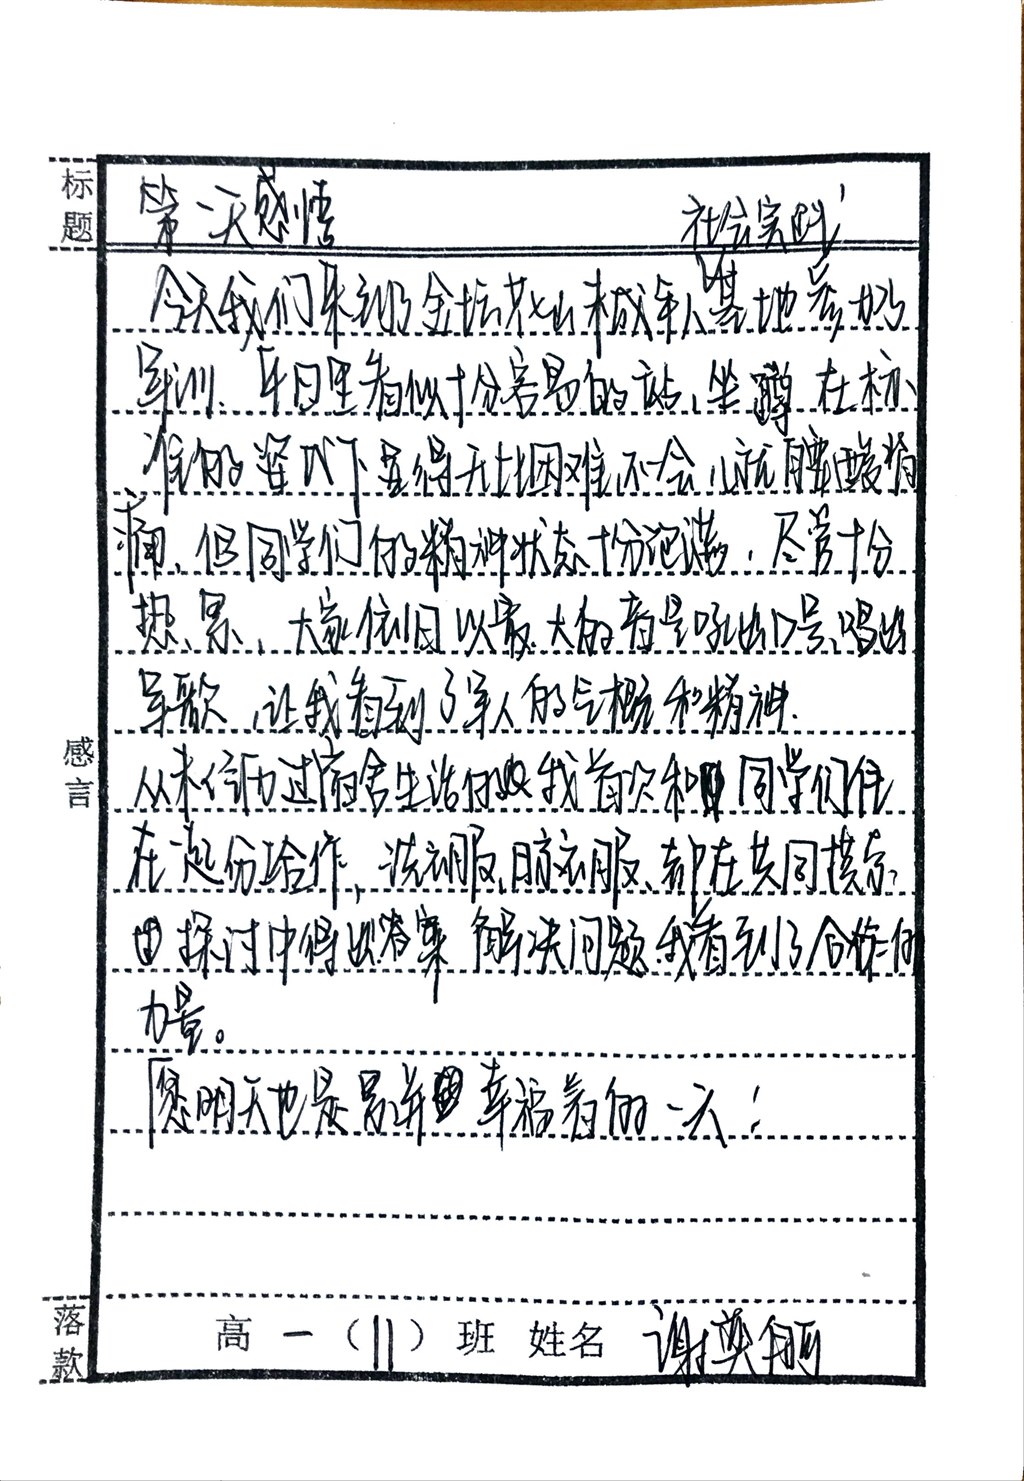 标题
第一天感悟
社会实践
今天我们来到了金坛茅山未成年人基地参加
军训、平日里看似十分容易的站、坐、蹲 在标
准的姿式下显得无比困难,不一会儿就腰酸背
痛、但同学们的精神状态十分饱满,尽管十分
热、累、大家依旧以最大的音量吼出口号、唱出
军歌,让我看到了军人的气概和精神.
感言
从未经历过宿舍生活的我首次和同学们住
在一起,份给作,洗衣服、晾衣服、都在共同摸索、
探讨中得出答案 解决问题.我看到了合作的
力量。
明天也是累并幸福着的一天!
落款
高一(11)班 姓名 谢